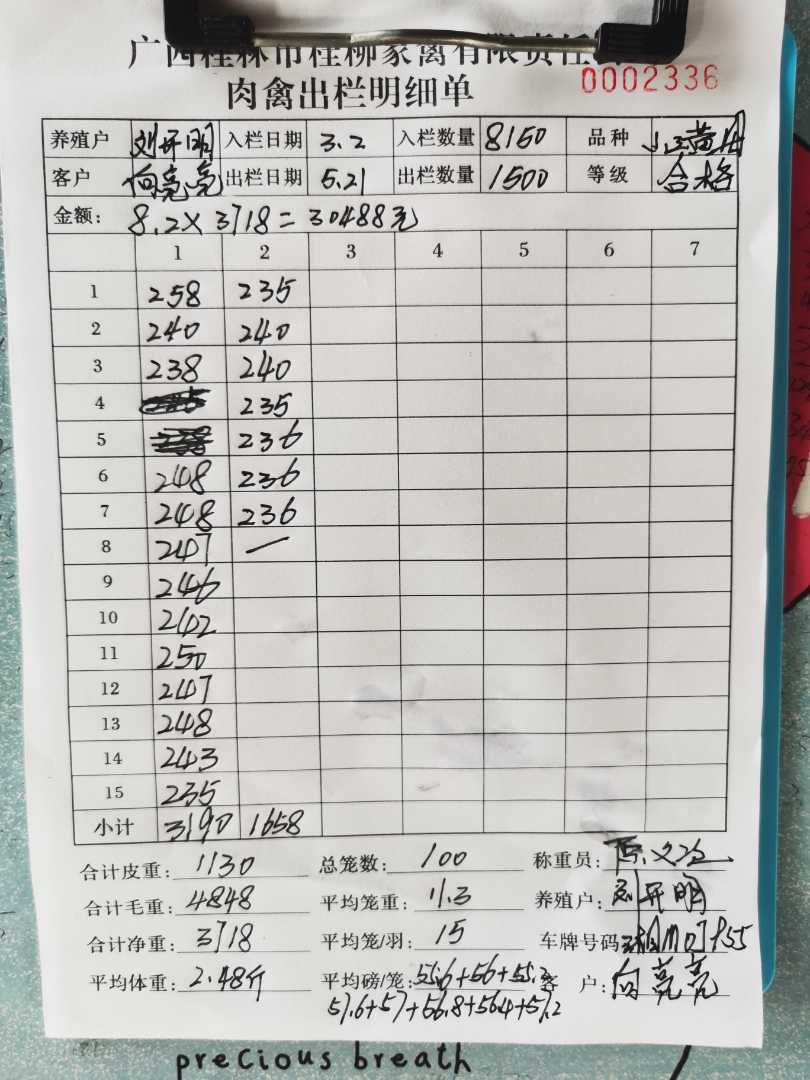 广西桂林市桂柳家禽有限责任
0002336
肉禽出栏明细单
养殖户 刘开明 入栏日期 3.2 入栏数量 8150 品种
客户 向亮亮 出栏日期 5.21 出栏数量 1500 等级 合格
金额: 8.2×3718=30488元
1 2 3 4 5 6 7
1 258 235
2 240 240
3 238 240
4 235
5 236
6 248 236
7 248 236
8 247 —
9 246
10 242
11 250
12 247
13 248
14 243
15 235
小计 3190 1658
合计皮重: 1130 总笼数: 100 称重员:
合计毛重: 4848 平均笼重: 11.3 养殖户: 刘开明
合计净重: 3718 平均笼/羽: 15 车牌号码
平均体重: 2.48斤 平均磅/笼: 55.6+56+55.2 客 户: 向亮亮
57.6+57+56.8+56.4+57.2
precious breath